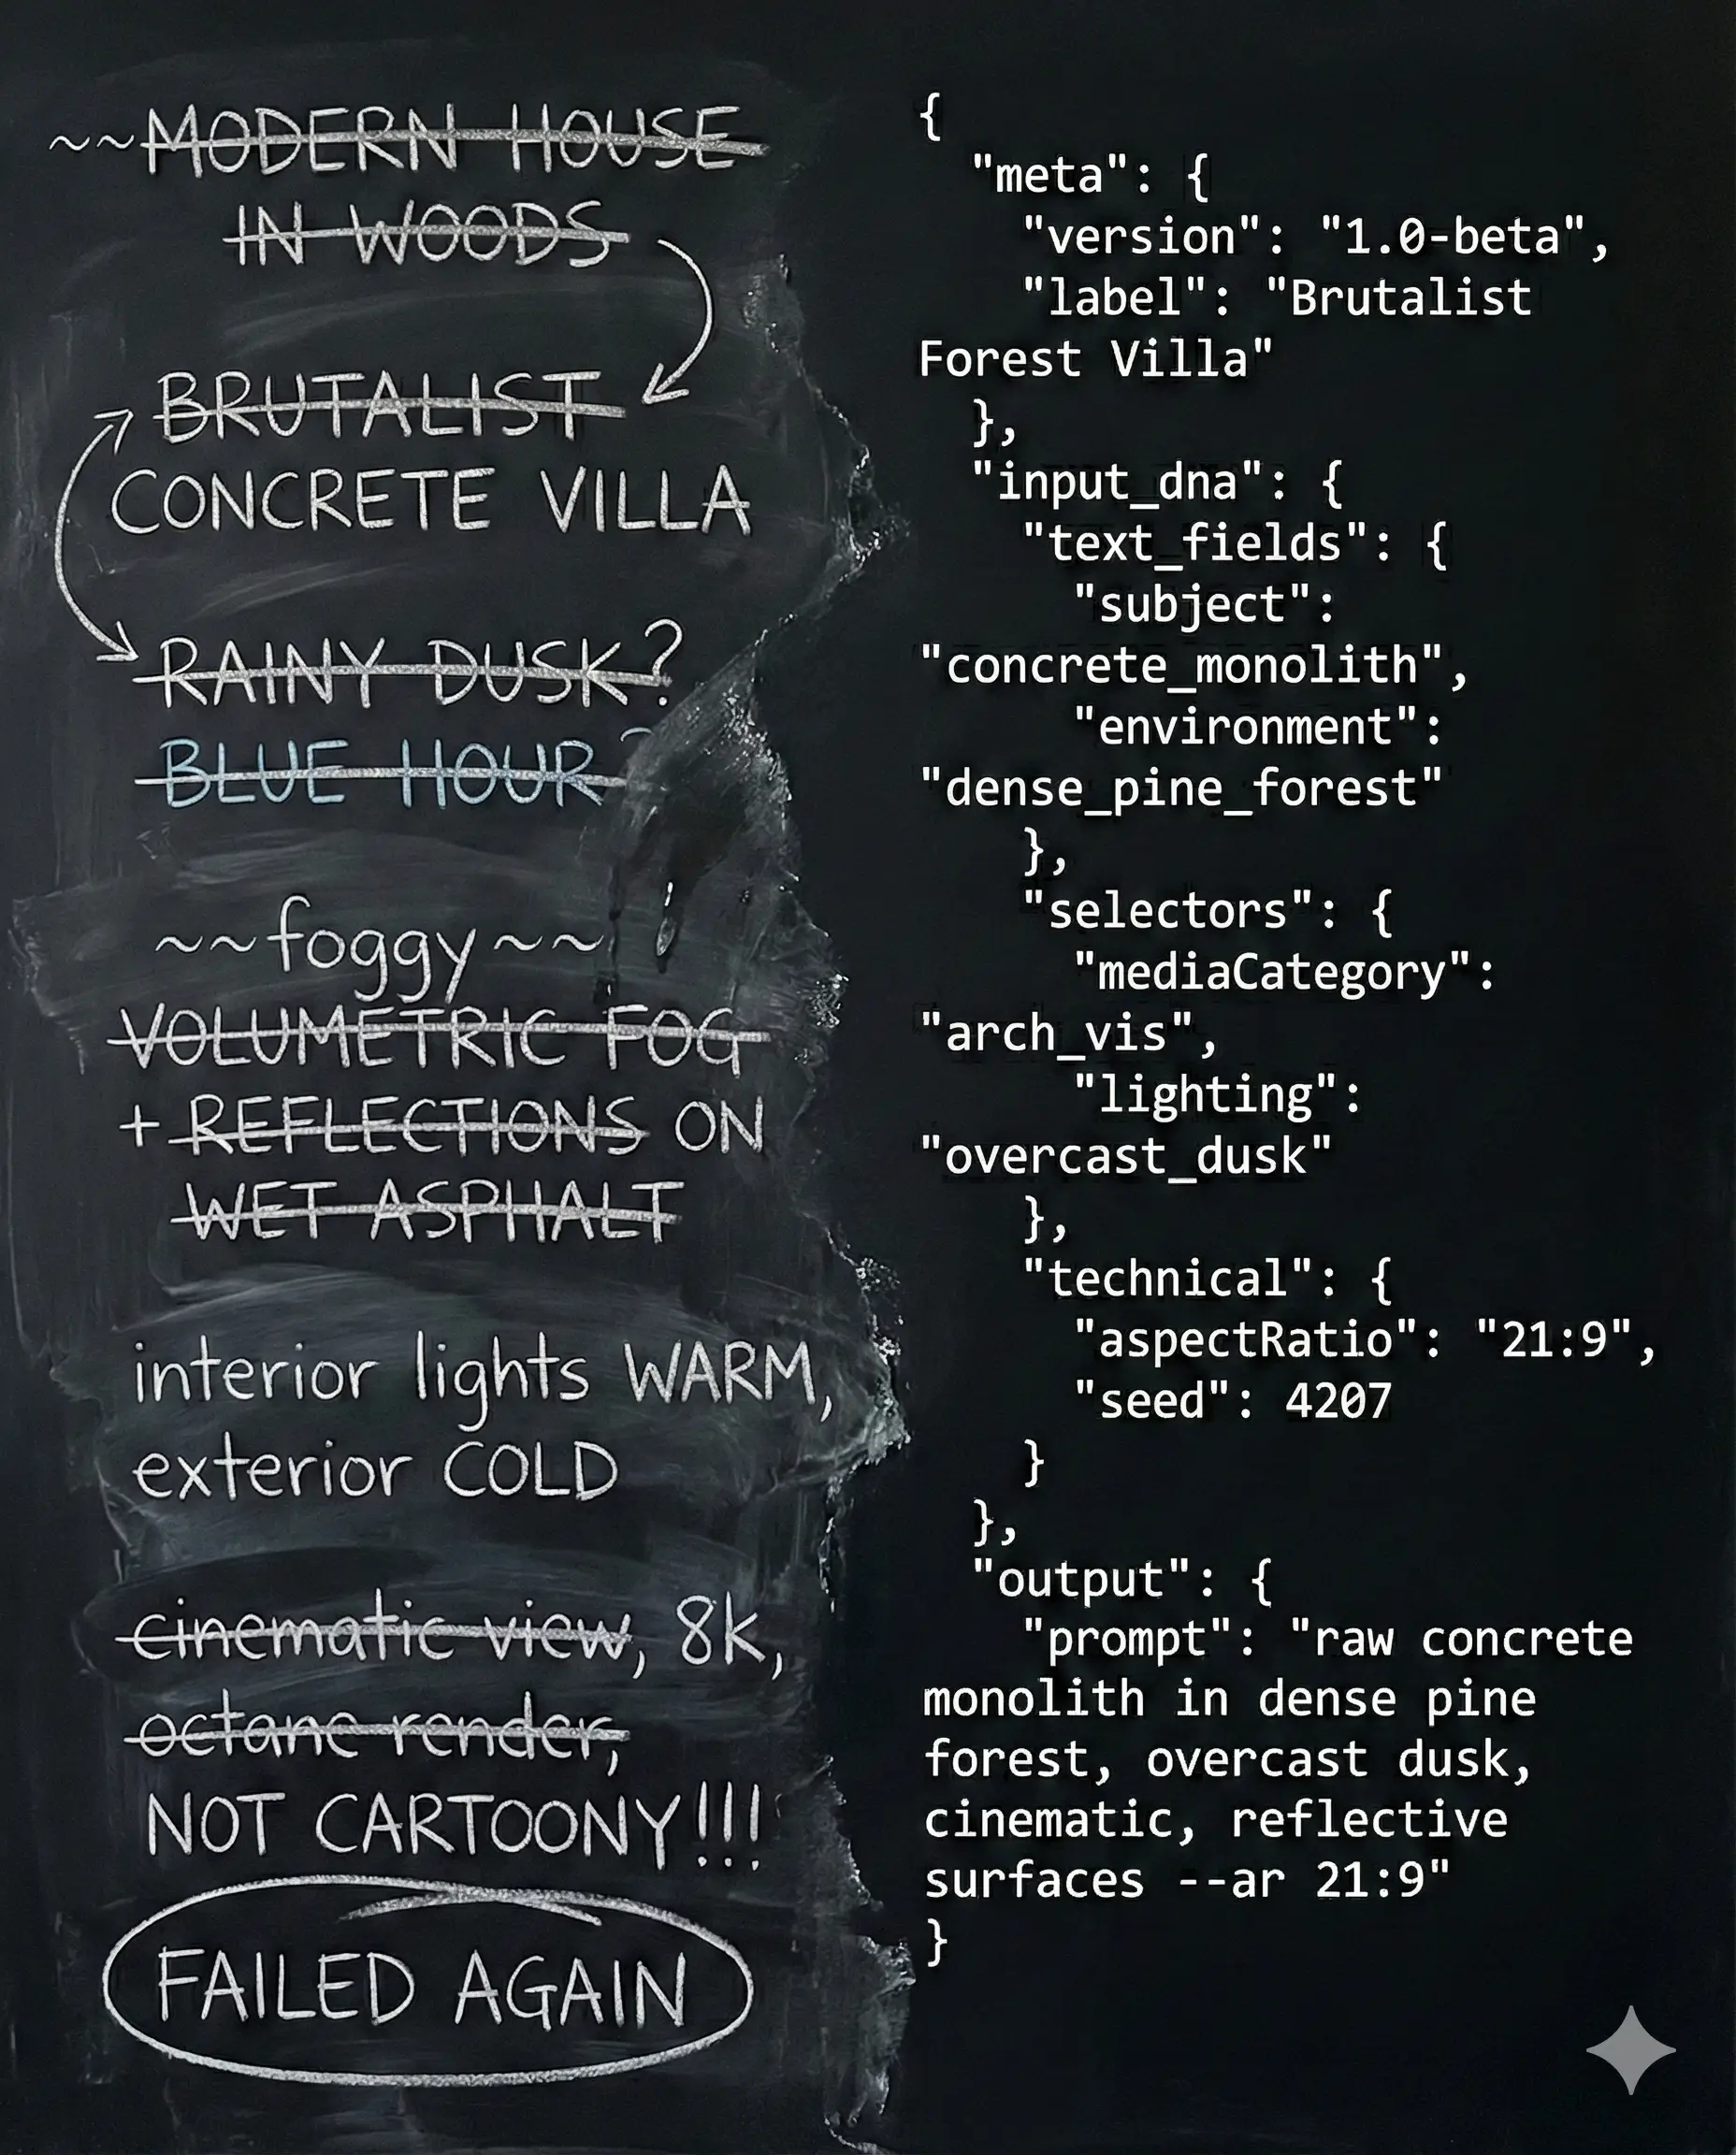 ~~MODERN HOUSE
IN WOODS
BRUTALIST
CONCRETE VILLA
RAINY DUSK?
BLUE HOUR?
~~foggy~~
VOLUMETRIC FOG
+ REFLECTIONS ON
WET ASPHALT
interior lights WARM,
exterior COLD
cinematic view, 8k,
octane render,
NOT CARTOONY!!!
FAILED AGAIN
{
"meta": {
"version": "1.0-beta",
"label": "Brutalist
Forest Villa"
},
"input_dna": {
"text_fields": {
"subject":
"concrete_monolith",
"environment":
"dense_pine_forest"
},
"selectors": {
"mediaCategory":
"arch_vis",
"lighting":
"overcast_dusk"
},
"technical": {
"aspectRatio": "21:9",
"seed": 4207
}
},
"output": {
"prompt": "raw concrete
monolith in dense pine
forest, overcast dusk,
cinematic, reflective
surfaces --ar 21:9"
}